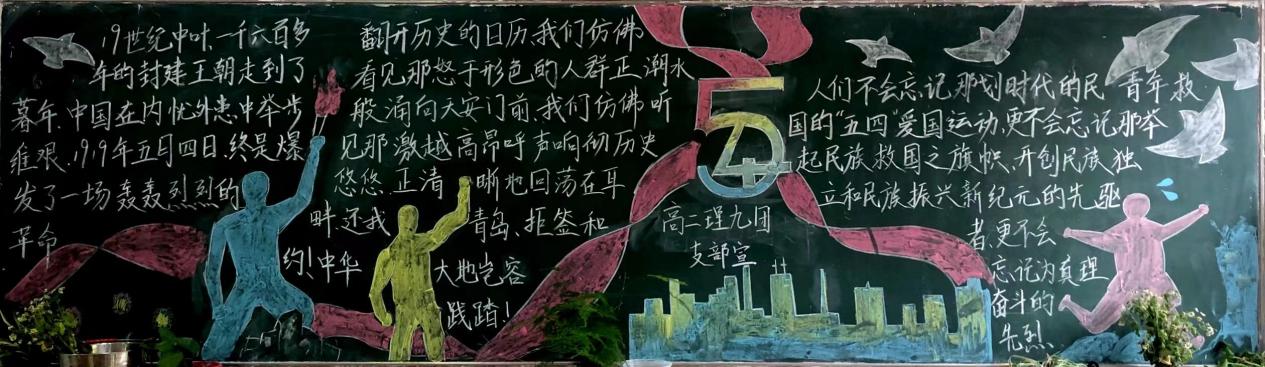 19世纪中叶、一千六百多
年的封建王朝走到了
暮年.中国在内忧外患中举步
维艰.1919年五月四日,终是爆
发了一场轰轰烈烈的
革命
翻开历史的日历,我们仿佛
看见那怒于形色的人群正潮水
般涌向天安门前,我们仿佛听
见那激越高昂呼声响彻历史
悠悠、正清晰地回荡在耳
畔.还我青岛、拒签和
约!中华大地岂容
践踏!
54
高二理九团
支部宣
人们不会忘记那划时代的民青年救
国的“五四”爱国运动,更不会忘记那举
起民族救国之旗帜,开创民族独
立和民族振兴新纪元的先驱
者,更不会
忘记为真理
奋斗的
先烈